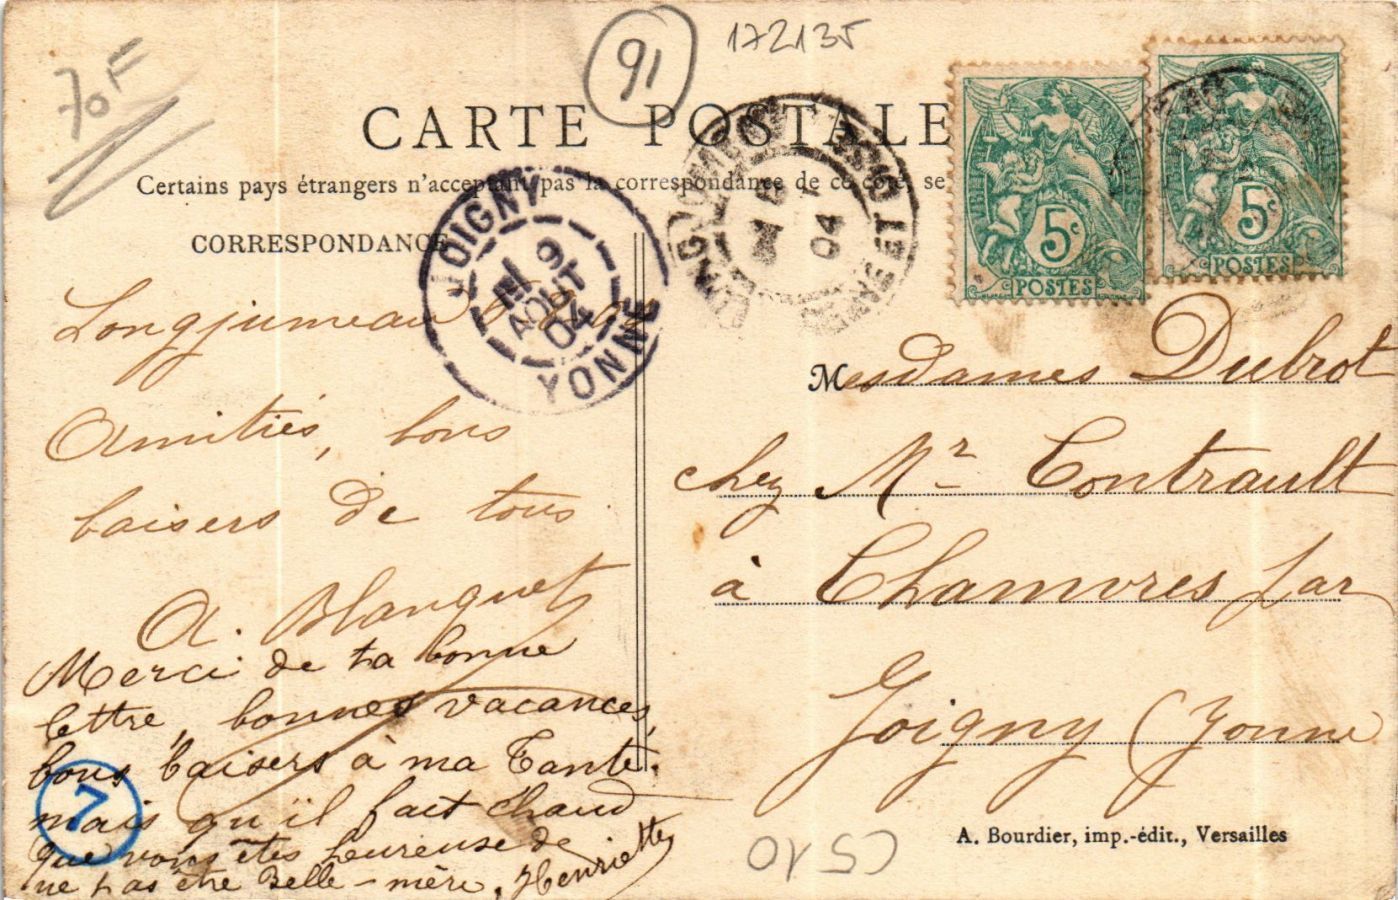 70F
91
172135
CARTE POSTALE
Certains pays étrangers n'acceptent pas la correspondance de ce côté, se
CORRESPONDANCE
JOIGNY
9
AOUT
04
YONNE
04
SEINE ET OISE
5c
POSTES
5c
POSTES
Longjumeau
Amitiés, bons
baisers de tous
A. Blanquet
Merci de ta bonne
lettre, bonnes vacances,
bons baisers à ma Tante.
mais qu'il fait chaud
que vous êtes heureuse de
ne pas être Belle-mère, Henriette
7
Mesdames Dubrot
chez Mr Contrault
à Chamvres par
Joigny (Yonne
A. Bourdier, imp.-édit., Versailles
C510